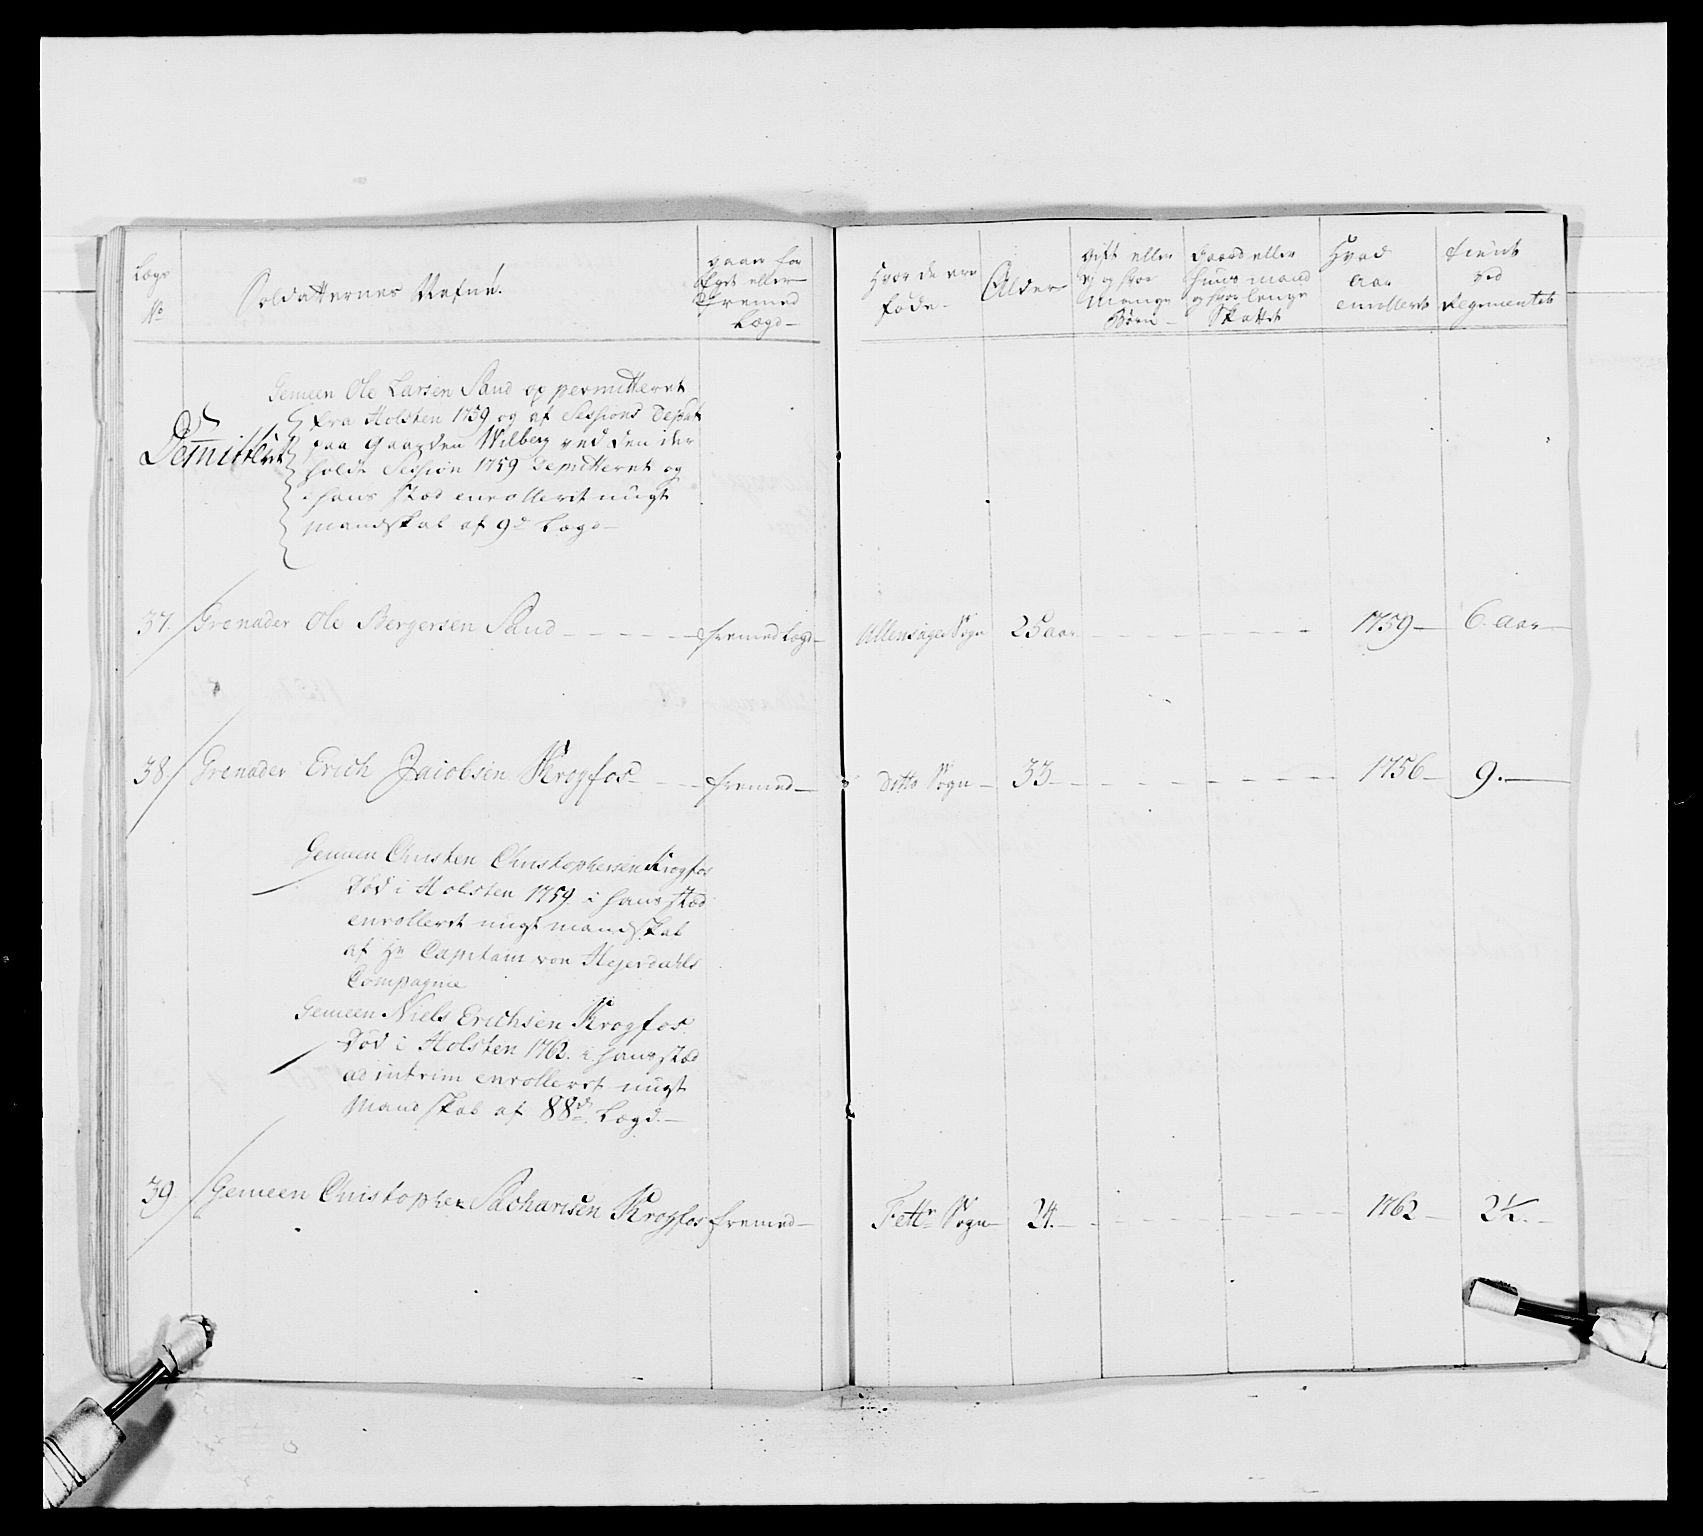 Lægs
No
Soldatternes Nefne.
gaar for
Eget eller
Fremed
Lægd
Hvor de ere
føde
Alder
Gift eller
ey og hvor
mange
Børn
Gaard eller
Huus mand
og hvor lenge
Skattet
Hvad
Aar
enrullert
tient
ved
Regimentet
Gemeen Ole Larsen Sand er permitteret
fra Holsten 1759 og af Sessions Deput
Demitteret
paa Gaarden Wilberg ved den
holdt Session 1759 Demitteret og
i hans stæd enrolleret nugt
mandskab af 9de Lægd
37. Grenader Ole Bergersen Sand fremed Lægd Ullensager Sogn 25 aar 1759 6 Aar
38. Grenader Erich Jacobsen Krogfos fremed ditto Sogn 33 1756 9.
Gemeen Christen Christophersen Krogfos
Død i Holsten 1759. i hans stæd
enrolleret nugt mandskab
af Hr Capitain von Hejerdahls
Compagnie
Gemeen Niels Erichsen Krogfos
Død i Holsten 1762. i hans stæd
ad intrim enrolleret nugt
Mandskab af 88de Lægd.
39. Gemeen Christopher Sacharisen Krogfos fremed Fette Sogn 24. 1762 2½.